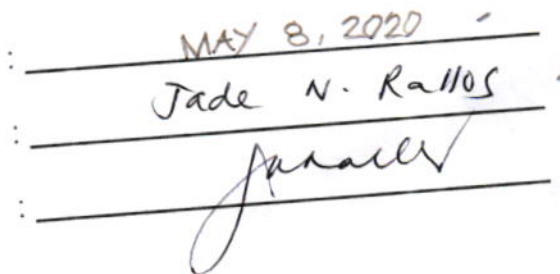 : MAY 8, 2020
: Jade N. Rallos
: